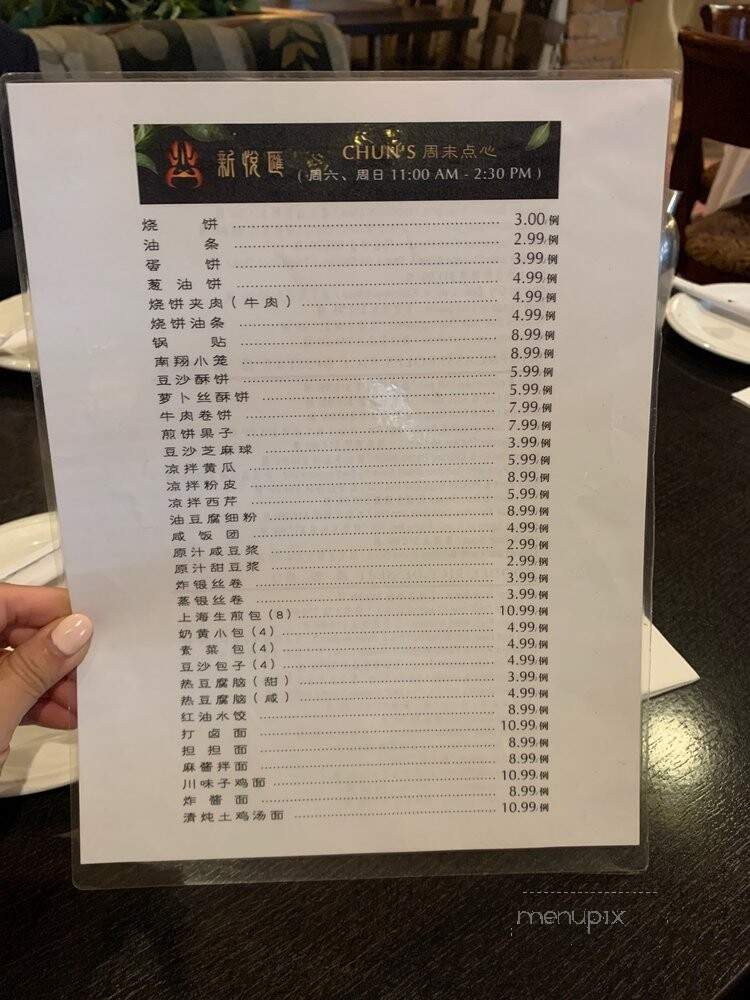 新悦匯 CHUN'S 周末点心
( 周六、周日 11:00 AM - 2:30 PM )
烧饼 3.00/例
油条 2.99/例
蛋饼 3.99/例
葱油饼 4.99/例
烧饼夹肉(牛肉) 4.99/例
烧饼油条 4.99/例
锅贴 8.99/例
南翔小笼 8.99/例
豆沙酥饼 5.99/例
萝卜丝酥饼 5.99/例
牛肉卷饼 7.99/例
煎饼果子 7.99/例
豆沙芝麻球 3.99/例
凉拌黄瓜 5.99/例
凉拌粉皮 8.99/例
凉拌西芹 5.99/例
油豆腐细粉 8.99/例
咸饭团 4.99/例
原汁咸豆浆 2.99/例
原汁甜豆浆 2.99/例
炸银丝卷 3.99/例
蒸银丝卷 3.99/例
上海生煎包(8) 10.99/例
奶黄小包(4) 4.99/例
素菜包(4) 4.99/例
豆沙包子(4) 4.99/例
热豆腐脑(甜) 3.99/例
热豆腐脑(咸) 4.99/例
红油水饺 8.99/例
打卤面 10.99/例
担担面 8.99/例
麻酱拌面 8.99/例
川味子鸡面 10.99/例
炸酱面 8.99/例
清炖土鸡汤面 10.99/例
menupix